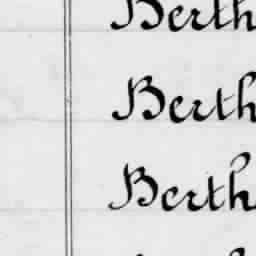 Berth
Berth
Berth